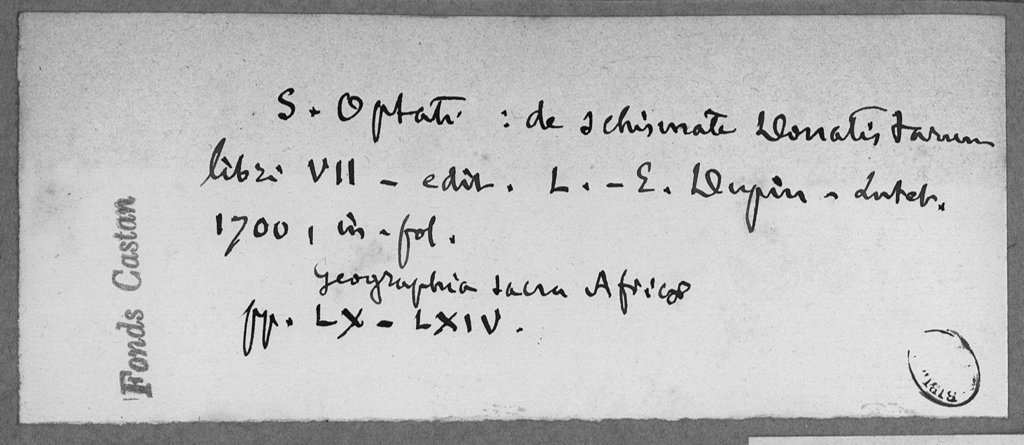 S. Optati : de schismate Donatistarum
libri VII - edit. L.-E. Dupin - Lutet.
1700, in-fol.
Geographia sacra Africæ
pp. LX - LXIV.
Fonds Castan
BIBL.